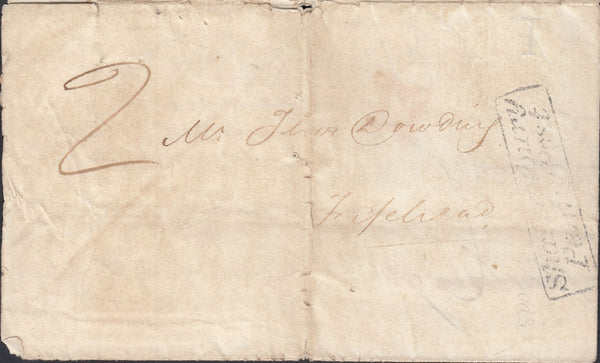 2
Mr Thos Dowding
Fifehead
Shaftesbury
Penny Post